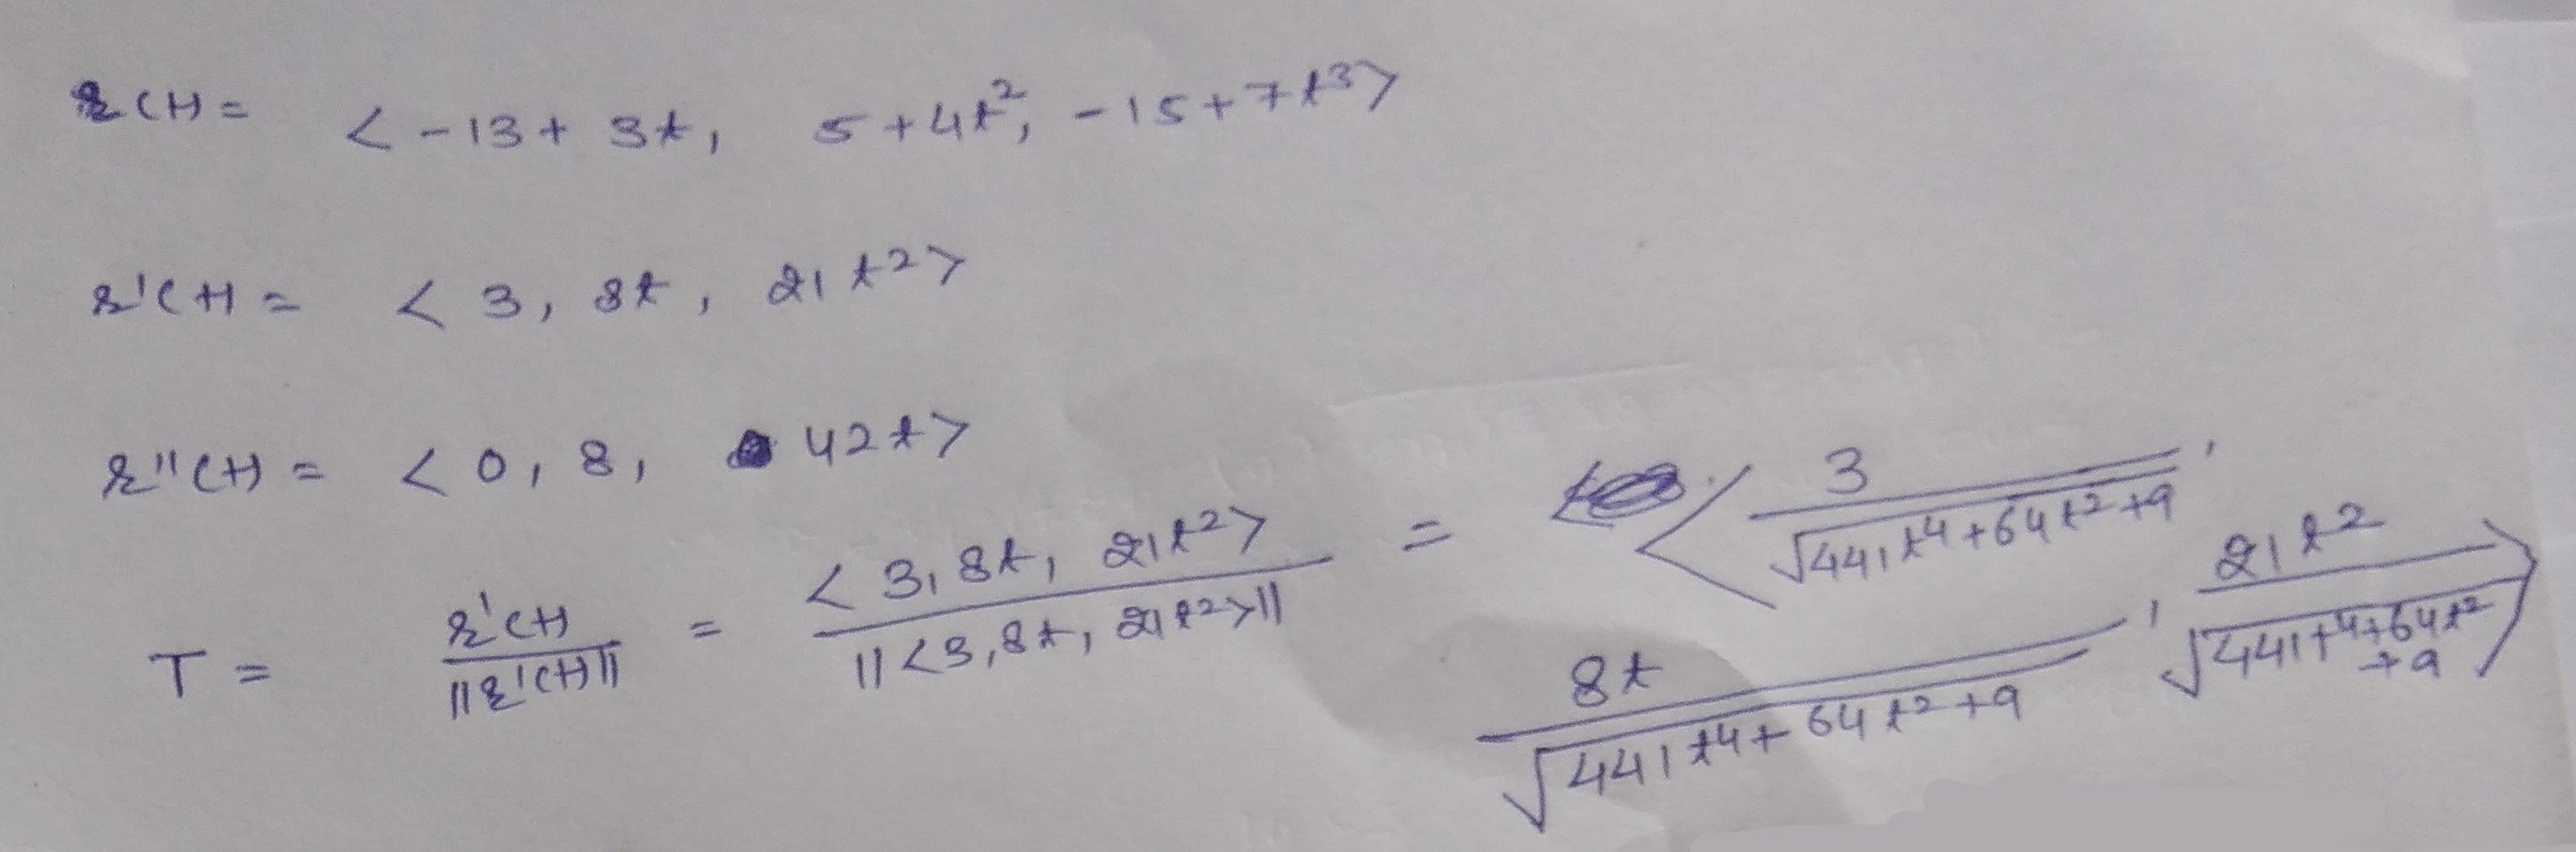 r(t) = < -13 + 3t, 5 + 4t², -15 + 7t³>
r'(t) = < 3, 8t, 21t²>
r''(t) = < 0, 8, 42t>
T = r'(t) / ||r'(t)|| = < 3, 8t, 21t²> / ||<3, 8t, 21t²>|| = < 3 / √(441t⁴ + 64t² + 9),
8t / √(441t⁴ + 64t² + 9), 21t² / √(441t⁴ + 64t² + 9) >